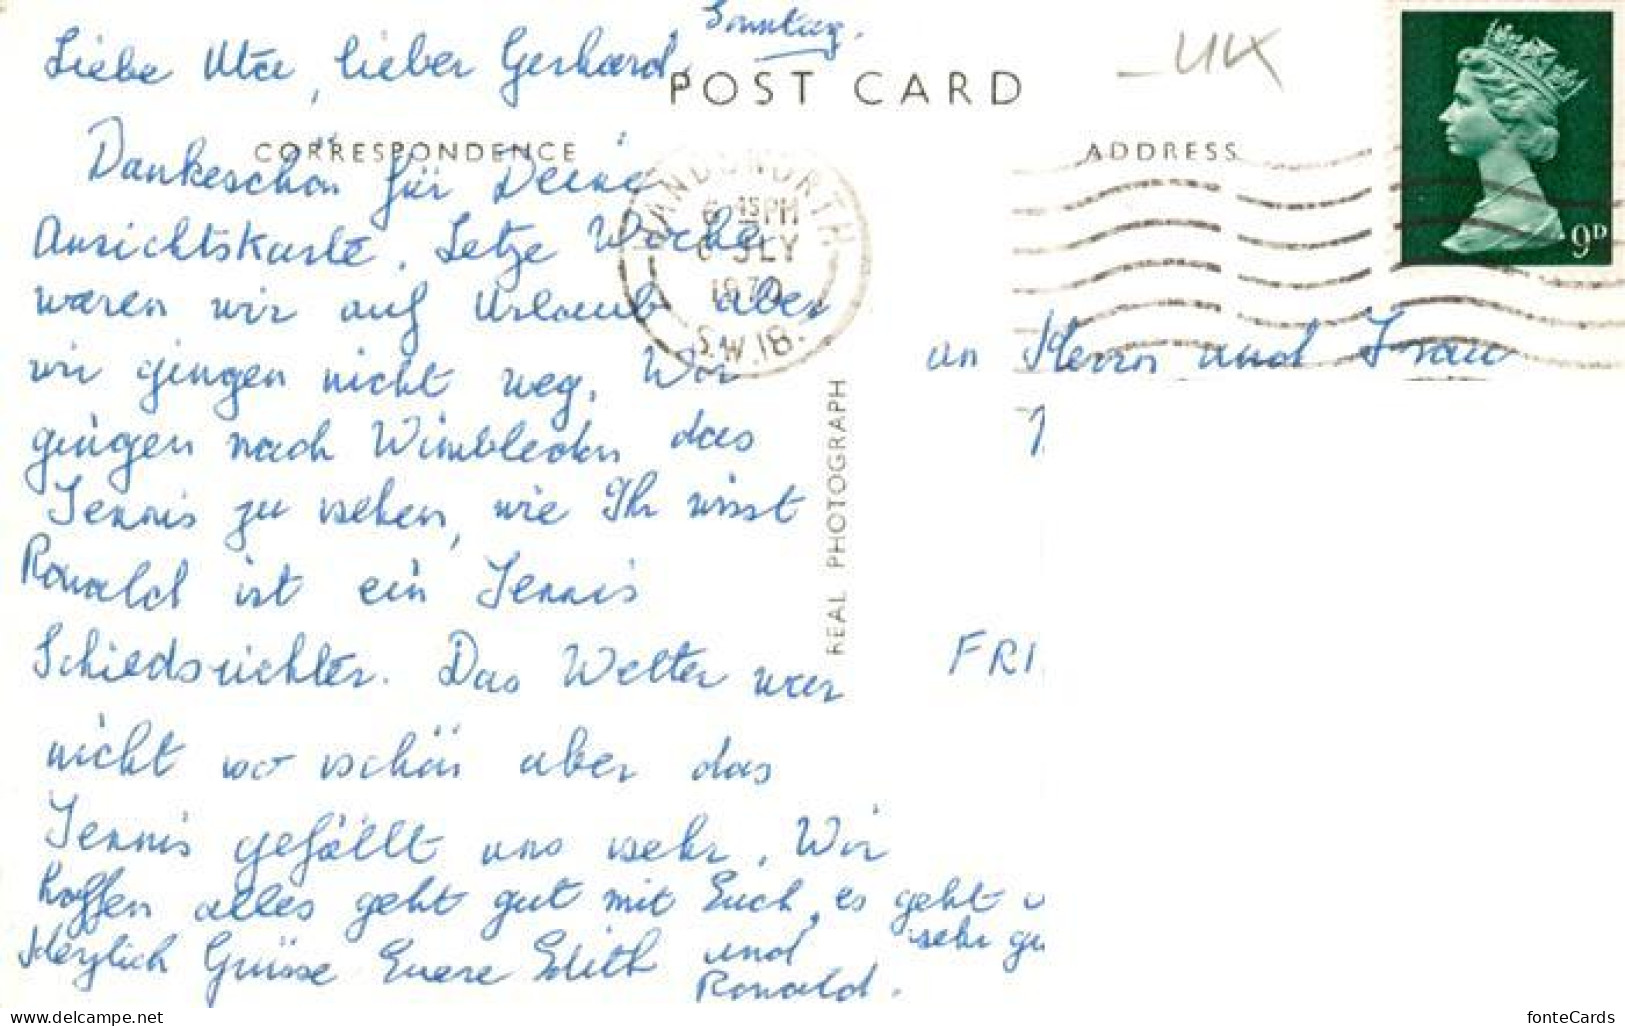 Sonntag.
Liebe Ute, lieber Gerhard,
- UK
POST CARD
CORRESPONDENCE
ADDRESS
9D
WANDSWORTH
6 45 PM
6 JLY
1970
S.W.18.
Dankeschön für Deine
Ansichtskarte. Letze Woche
waren wir auf Urlaub aber
wir gingen nicht weg. Wir
gingen nach Wimbledon das
Tennis zu sehen, wie Ihr wisst
Ronald ist ein Tennis
Schiedsrichter. Das Wetter war
nicht so schön aber das
Tennis gefällt uns sehr. Wir
hoffen alles geht gut mit Euch, es geht
sehr gu
Herzlich Grüsse Euere Edith und
Ronald.
REAL PHOTOGRAPH
an Herrn und Frau
FRI
delcampe.net
fonteCards